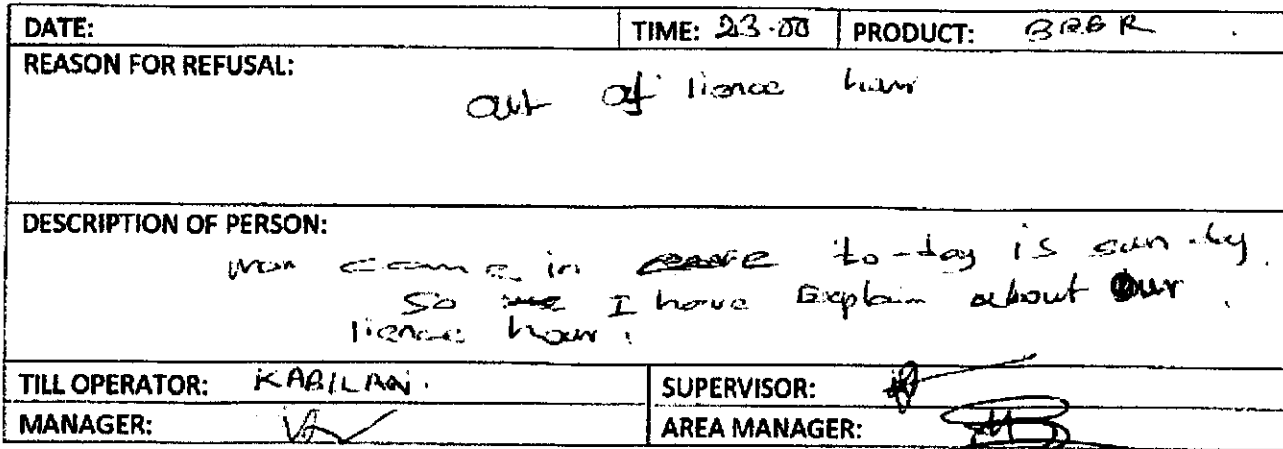 DATE: TIME: 23.00 PRODUCT: BEER
REASON FOR REFUSAL:
out of lience hour
DESCRIPTION OF PERSON:
man came in to-day is sunday.
So I have Explain about our
lience hour.
TILL OPERATOR: KABILAN. SUPERVISOR:
MANAGER: AREA MANAGER: